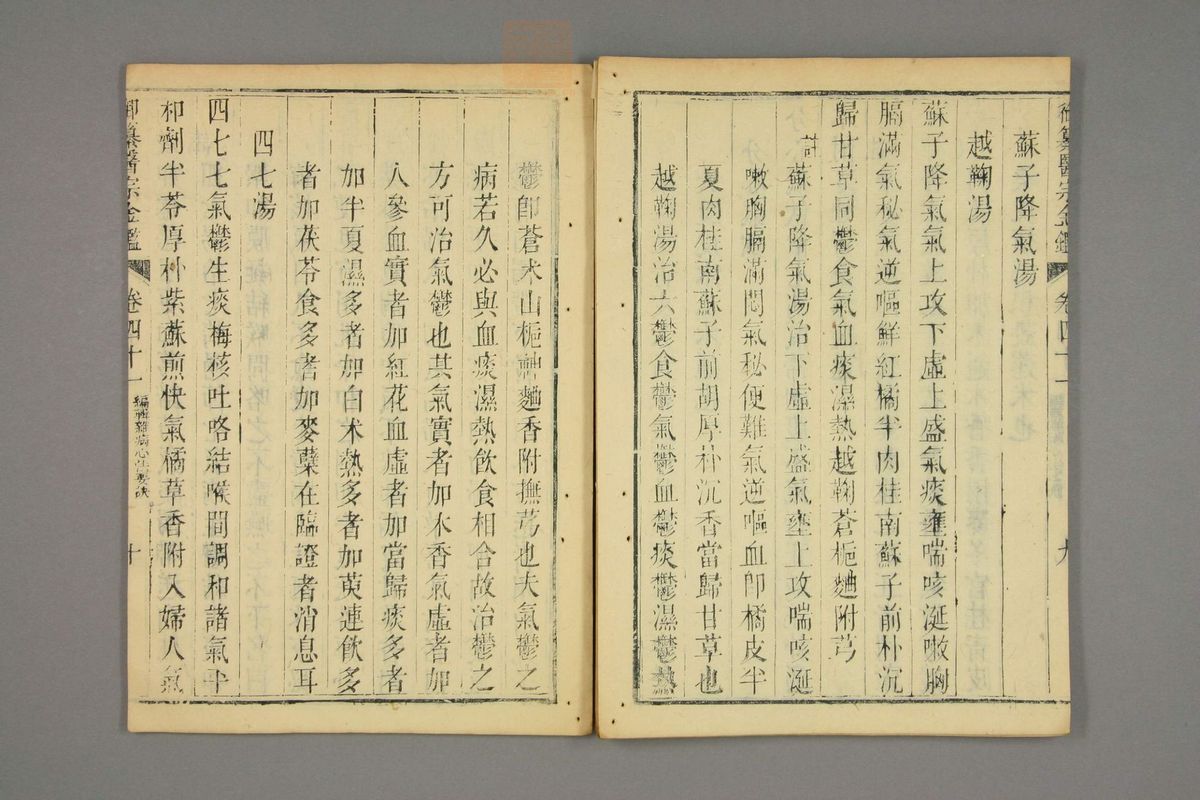 御纂醫宗金鑑 卷四十一 九
蘇子降氣湯
越鞠湯
蘇子降氣氣上攻下虛上盛氣痰壅喘咳涎嗽胸
膈滿氣秘氣逆嘔鮮紅橘半肉桂南蘇子前朴沉
歸甘草同鬱食氣血痰濕熱越鞠蒼梔麯附芎
註蘇子降氣湯治下虛上盛氣壅上攻喘咳涎
嗽胸膈滿悶氣秘便難氣逆嘔血卽橘皮半
夏肉桂南蘇子前胡厚朴沉香當歸甘草也
越鞠湯治六鬱食鬱氣鬱血鬱痰鬱濕鬱熱
鬱卽蒼朮山梔神麯香附撫芎也夫氣鬱之
病若久必與血痰濕熱飲食相合故治鬱之
方可治氣鬱也其氣實者加木香氣虛者加
人參血實者加紅花血虛者加當歸痰多者
加半夏濕多者加白朮熱多者加萸連飲多
者加茯苓食多者加麥蘗在臨證者消息耳
四七湯
四七七氣鬱生痰梅核吐咯結喉間調和諸氣平
和劑半苓厚朴紫蘇煎快氣橘草香附入婦人氣
御纂醫宗金鑑 卷四十一 編輯雜病心法要訣 十